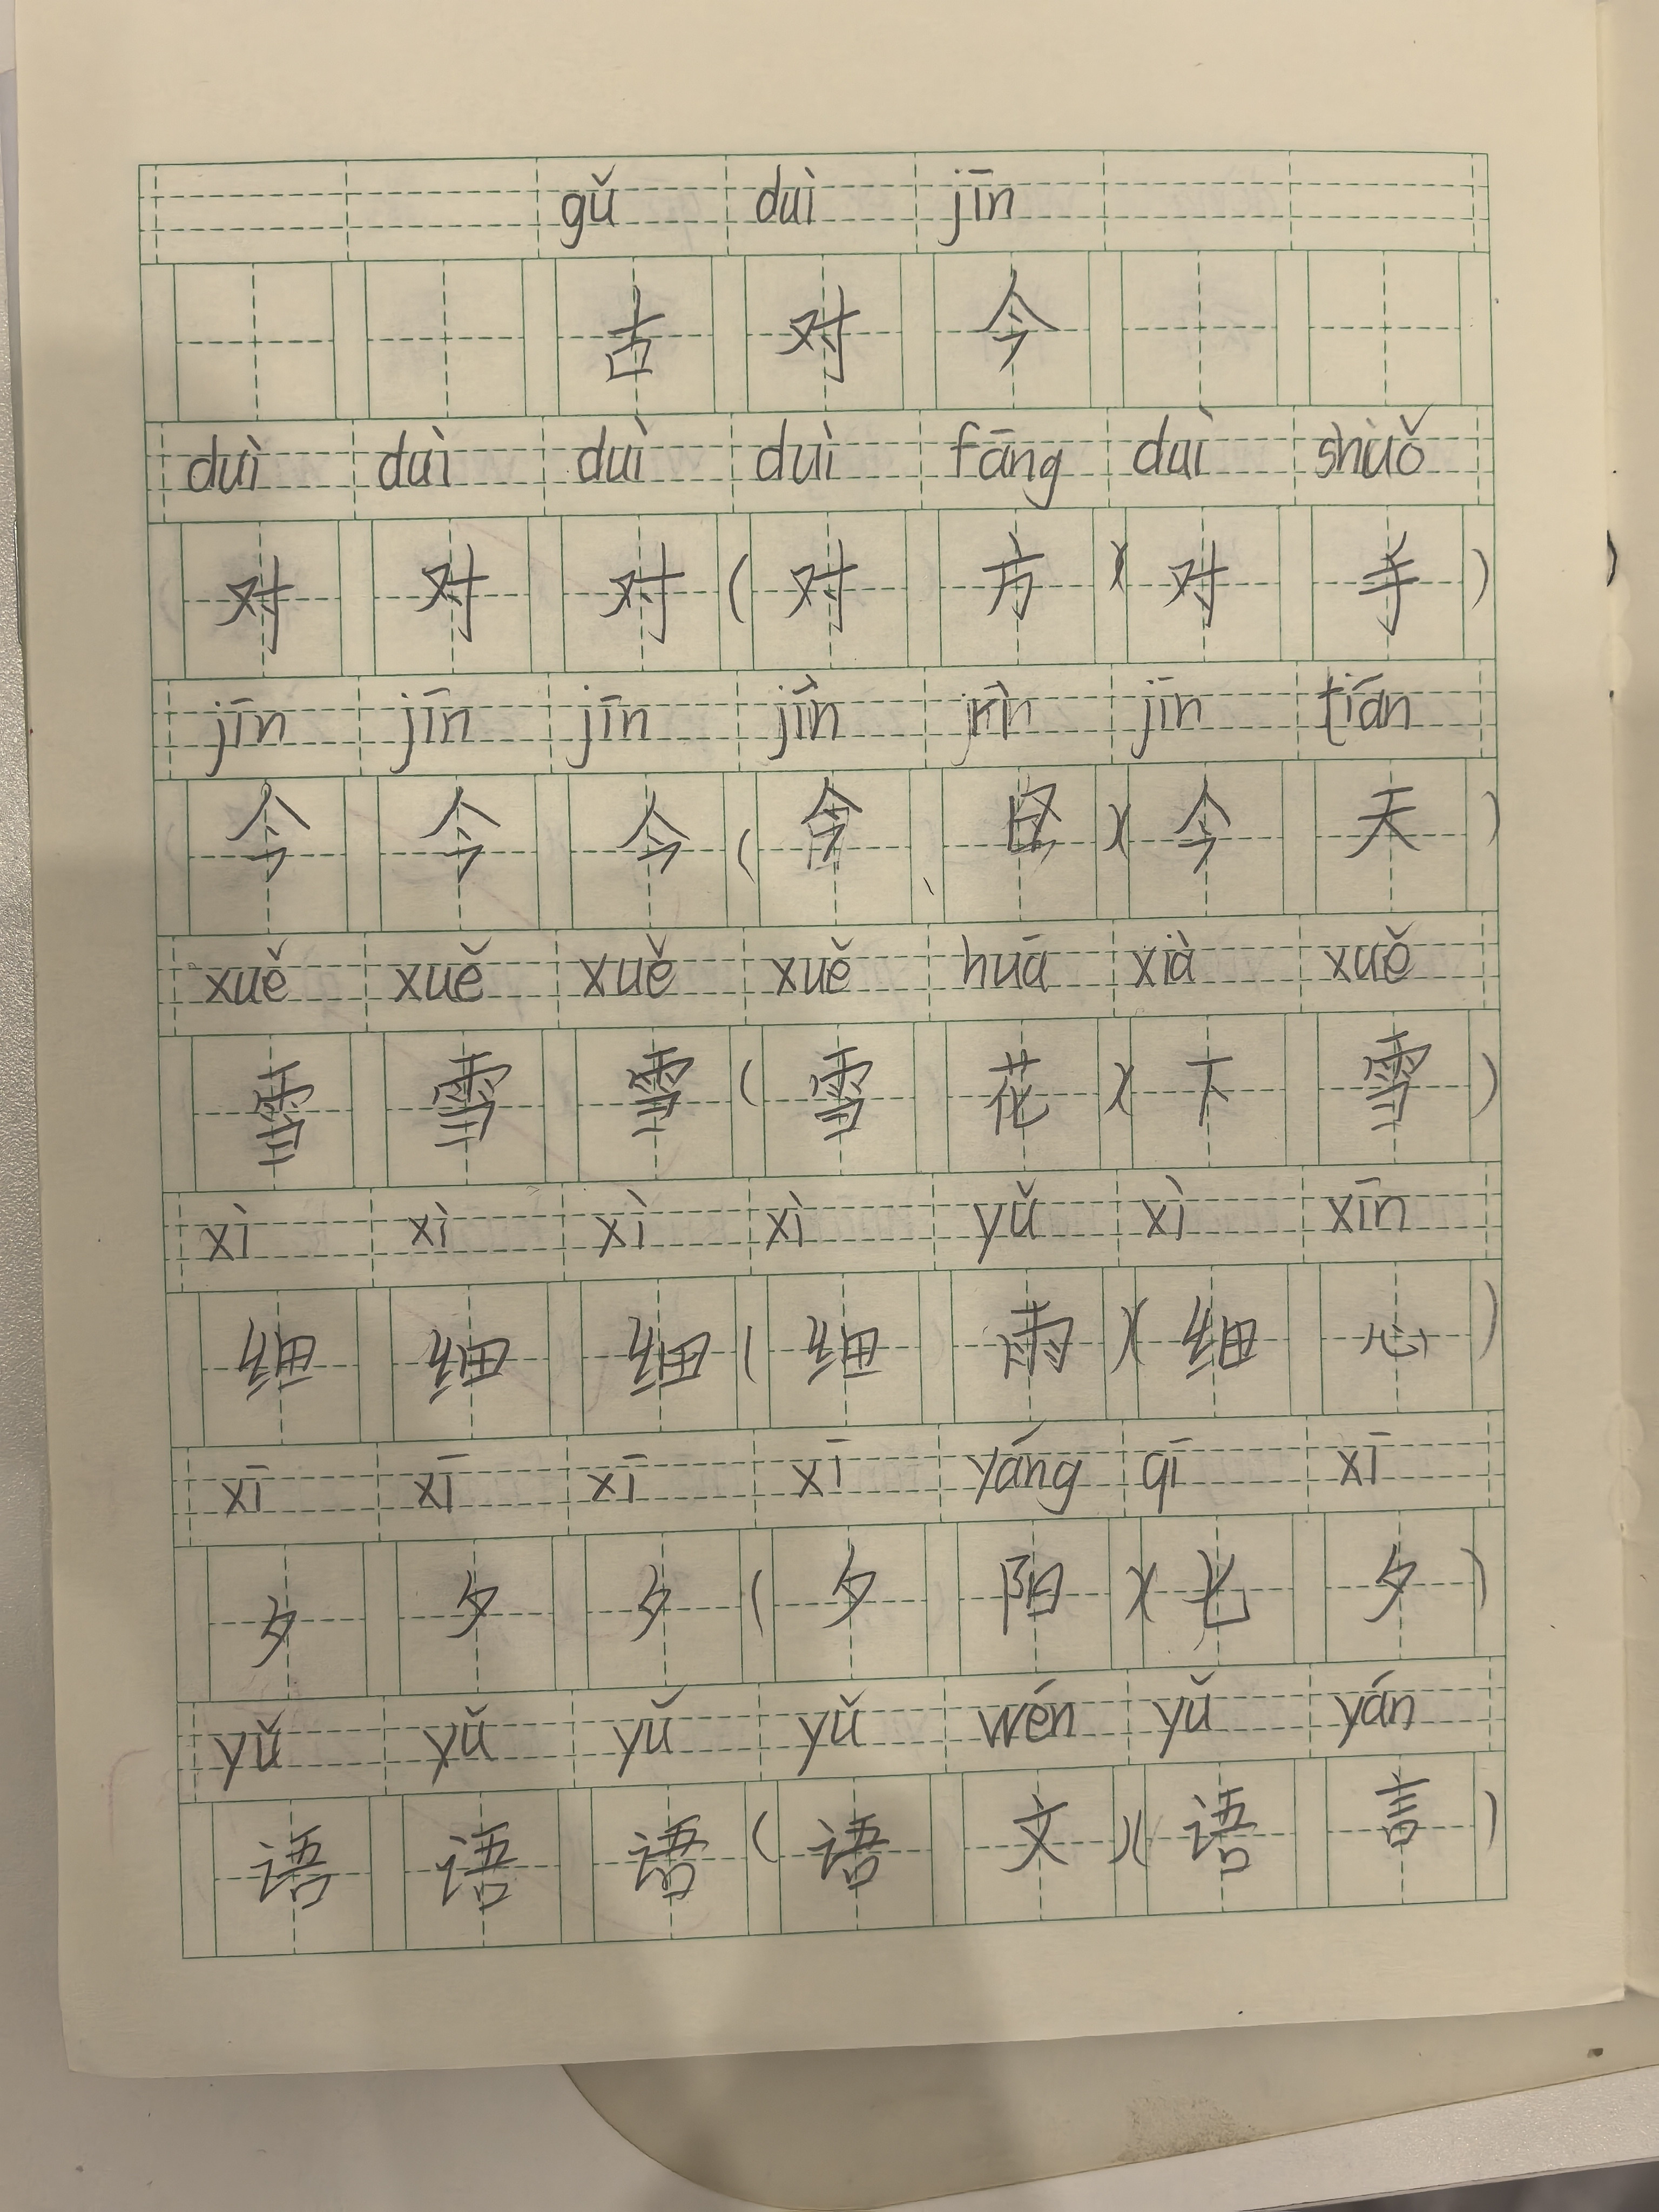 gǔ duì jīn
古 对 今
duì duì duì duì fāng duì shuǒ
对 对 对 ( 对 方 ) ( 对 手 )
jīn jīn jīn jīn jīn tián
今 今 今 ( 今 ) ( 今 天 )
xuě xuě xuě xuě huā xià xuě
雪 雪 雪 ( 雪 花 ) ( 下 雪 )
xì xì xì xì yǔ xì xīn
细 细 细 ( 细 雨 ) ( 细 心 )
xī xī xī xī yáng qī xī
夕 夕 夕 ( 夕 阳 ) ( 七 夕 )
yǔ yǔ yǔ yǔ wén yǔ yán
语 语 语 ( 语 文 ) ( 语 言 )